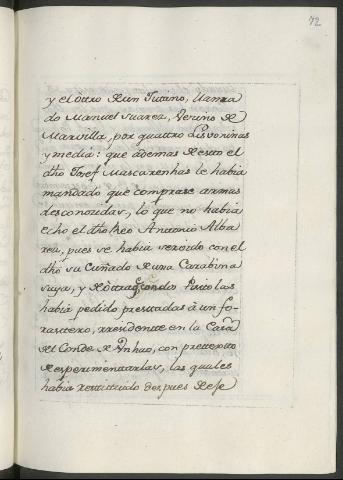 72
y el òtro de un Tutino, llama
do Manuel Suarez, Vecino de
Marvilla, por quattro Lisvoninas
y media: que ademas de esto el
dho Josef Mascarenhas le habia
mandado que comprase armas
desconocidas, lo que no habia
echo el dho Reo Antonio Alba
rez, pues se habia servido con el
dho su Cuñado de una Carabina
suya, y de òtra, con dos
las
habia pedido prestadas à un fo-
rastero, rresidente en la Casa
del Conde de Unhao, con prettexto
de esperimentarlas, las quales
habia restituido despues de